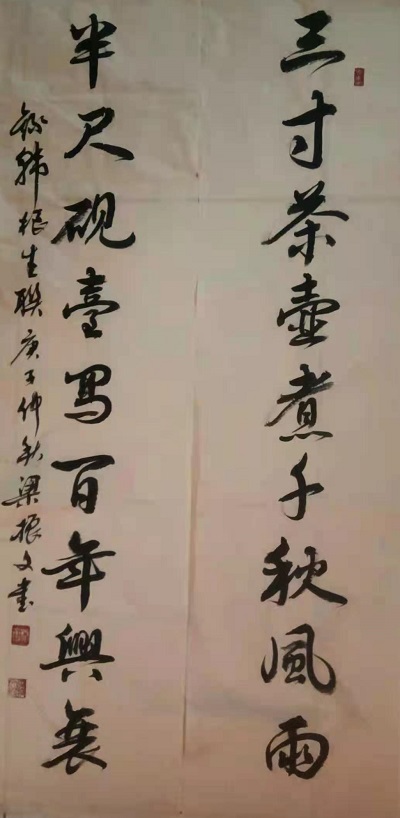 三寸茶壺煮千秋風雨
半尺硯臺写百年興衰
録韩根生联庚子仲秋梁振文書